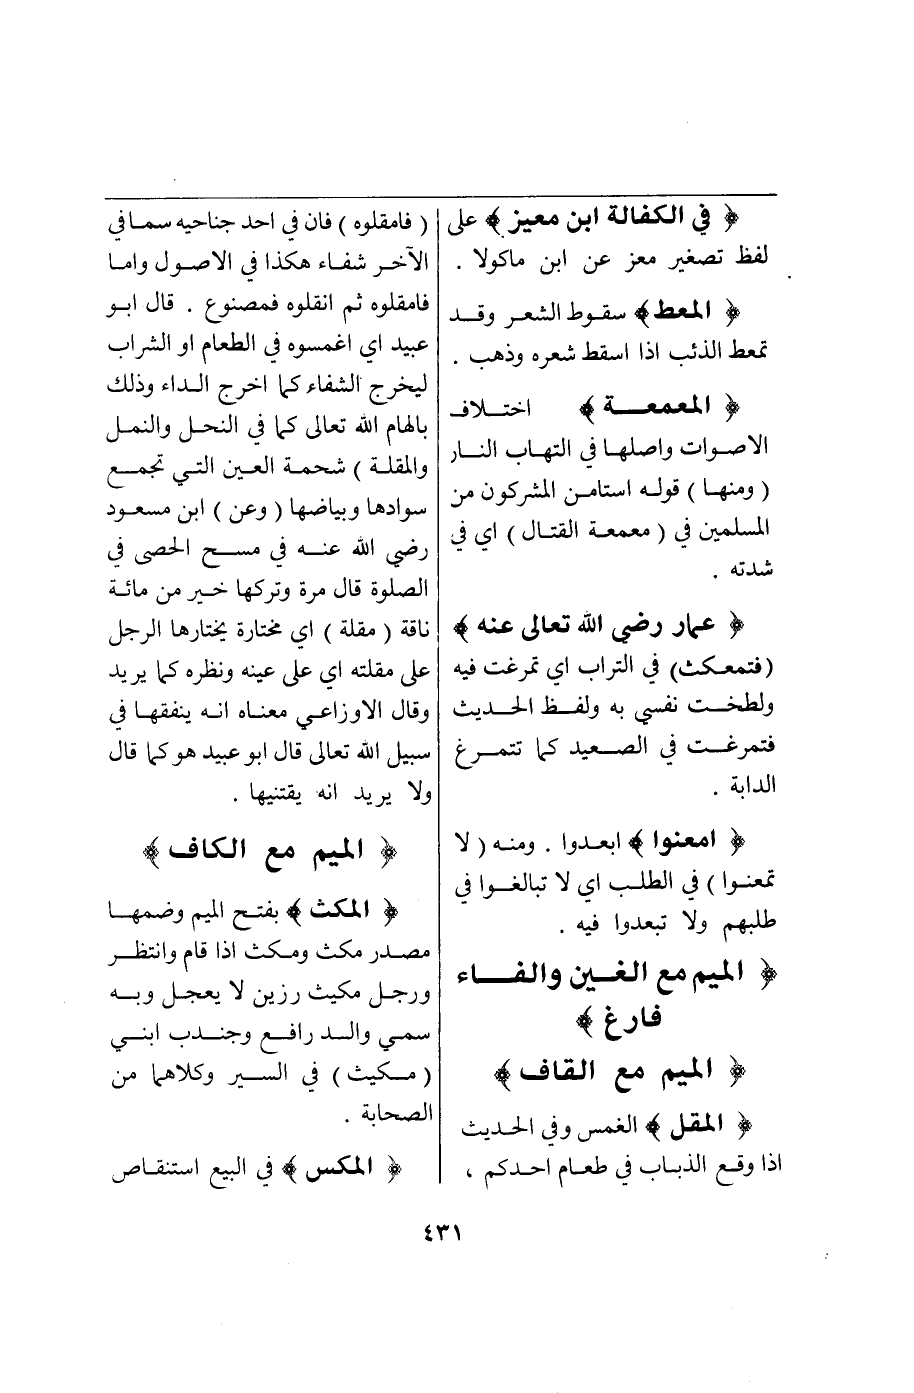 ﴿ في الكفالة ابن معيز ﴾ على
لفظ تصغير معز عن ابن ماكولا .
﴿ المعط ﴾ سقوط الشعر وقد
تمعط الذئب اذا اسقط شعره وذهب .
﴿ المعمعة ﴾ اختلاف
الاصوات واصلها في التهاب النار
( ومنها ) قوله استامن المشركون من
المسلمين في ( معمعة القتال ) اي في
شدته .
﴿ عمار رضي الله تعالى عنه ﴾
(فتمعكت) في التراب اي تمرغت فيه
ولطخت نفسي به ولفظ الحديث
فتمرغت في الصعيد كما تتمرغ
الدابة .
﴿ امعنوا ﴾ ابعدوا . ومنه ( لا
تمعنوا ) في الطلب اي لا تبالغوا في
طلبهم ولا تبعدوا فيه .
﴿ الميم مع الغين والفاء
فارغ ﴾
﴿ الميم مع القاف ﴾
﴿ المقل ﴾ الغمس وفي الحديث
اذا وقع الذباب في طعام احدكم ،
( فامقلوه ) فان في احد جناحيه سما في
الآخر شفاء هكذا في الاصول واما
فامقلوه ثم انقلوه فمصنوع . قال ابو
عبيد اي اغمسوه في الطعام او الشراب
ليخرج الشفاء كما اخرج الداء وذلك
بالهام الله تعالى كما في النحل والنمل
والمقلة ) شحمة العين التي تجمع
سوادها وبياضها ( وعن ) ابن مسعود
رضي الله عنه في مسح الحصى في
الصلوة قال مرة وتركها خير من مائة
ناقة ( مقلة ) اي مختارة يختارها الرجل
على مقلته اي على عينه ونظره كما يريد
وقال الاوزاعي معناه انه ينفقها في
سبيل الله تعالى قال ابو عبيد هو كما قال
ولا يريد انه يقتنيها .
﴿ الميم مع الكاف ﴾
﴿ المكث ﴾ بفتح الميم وضمها
مصدر مكث ومكث اذا قام وانتظر
ورجل مكيث رزين لا يعجل وبه
سمي والد رافع وجندب ابني
( مكيث ) في السير وكلاهما من
الصحابة .
﴿ المكس ﴾ في البيع استنقاص
٤٣١